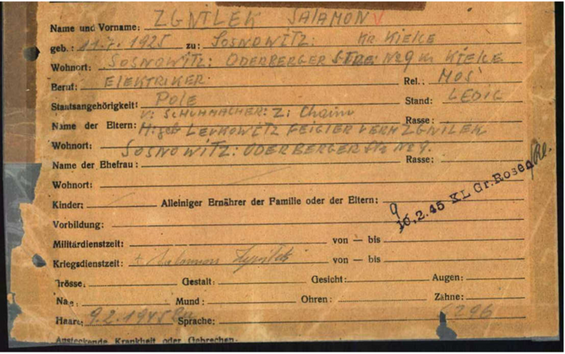 Name und Vorname: ZGNILEK SALAMON V
geb.: 11.5.1925 zu: SOSNOWITZ: KR KIELCE
Wohnort: SOSNOWITZ: ODERBERGER STR: Nr 9 Kr KIELCE
Beruf: ELEKTRIKER Rel.: MOS
Staatsangehörigkeit: POLE Stand: LEDIG
V: SCHUHMACHER: Z: Chaim
Name der Eltern: M: geb LEWKOWITZ FEIGLER VERH ZGNILEK Rasse:
Wohnort: SOSNOWITZ: ODERBERGER Str Nr 9.
Name der Ehefrau: Rasse:
Wohnort:
Kinder: Alleiniger Ernährer der Familie oder der Eltern:
16.2.45 KL Gr.Rosen
Vorbildung:
Militärdienstzeit: von — bis
Kriegsdienstzeit: + Salamon Zgnilek von — bis
Grösse: Gestalt: Gesicht: Augen:
Nase: Mund: Ohren: Zähne:
Haare: 9.2.1945 Sprache: 296
Ansteckende Krankheit oder Gebrechen: